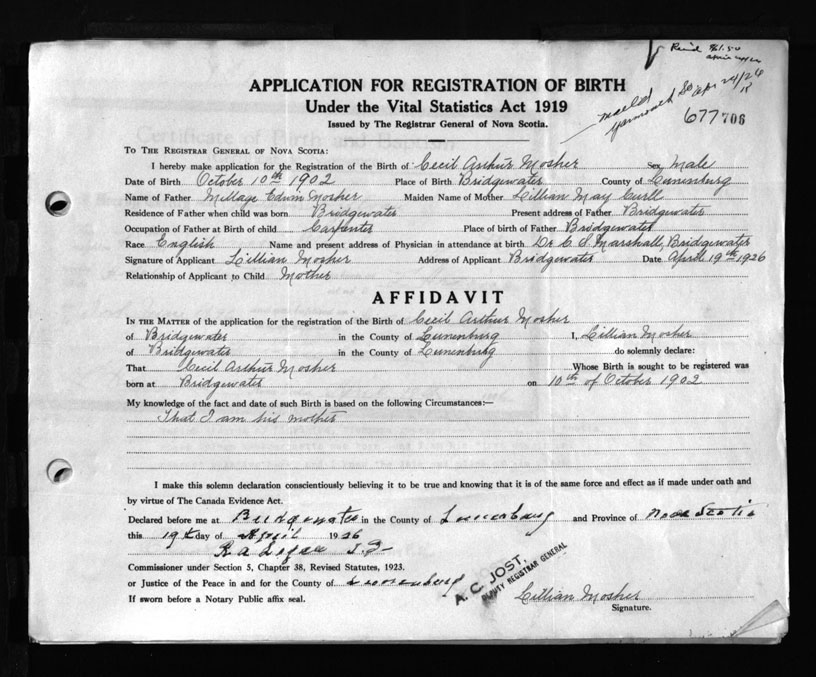 Recd $1.50
APPLICATION FOR REGISTRATION OF BIRTH
Under the Vital Statistics Act 1919
Issued by The Registrar General of Nova Scotia.
mailed Apr 24/26
677706
TO THE REGISTRAR GENERAL OF NOVA SCOTIA:
I hereby make application for the Registration of the Birth of Cecil Arthur Mosher Sex Male
Date of Birth October 10th 1902 Place of Birth Bridgewater County of Lunenburg
Name of Father Edwin Mosher Maiden Name of Mother Lillian May
Residence of Father when child was born Bridgewater Present address of Father Bridgewater
Occupation of Father at Birth of child Carpenter Place of birth of Father Bridgewater
Race English Name and present address of Physician in attendance at birth Dr C S Marshall, Bridgewater
Signature of Applicant Lillian Mosher Address of Applicant Bridgewater Date April 19th 1926
Relationship of Applicant to Child Mother
AFFIDAVIT
IN THE MATTER of the application for the registration of the Birth of Cecil Arthur Mosher
of Bridgewater in the County of Lunenburg I, Lillian Mosher
of Bridgewater in the County of Lunenburg do solemnly declare:
That Cecil Arthur Mosher Whose Birth is sought to be registered was
born at Bridgewater on 10th of October 1902
My knowledge of the fact and date of such Birth is based on the following Circumstances:—
That I am his mother
I make this solemn declaration conscientiously believing it to be true and knowing that it is of the same force and effect as if made under oath and
by virtue of The Canada Evidence Act.
Declared before me at Bridgewater in the County of Lunenburg and Province of Nova Scotia
this 19th day of April 1926
Commissioner under Section 5, Chapter 38, Revised Statutes, 1923.
or Justice of the Peace in and for the County of Lunenburg
A. C. JOST,
DEPUTY REGISTRAR GENERAL
If sworn before a Notary Public affix seal.
Lillian Mosher
Signature.